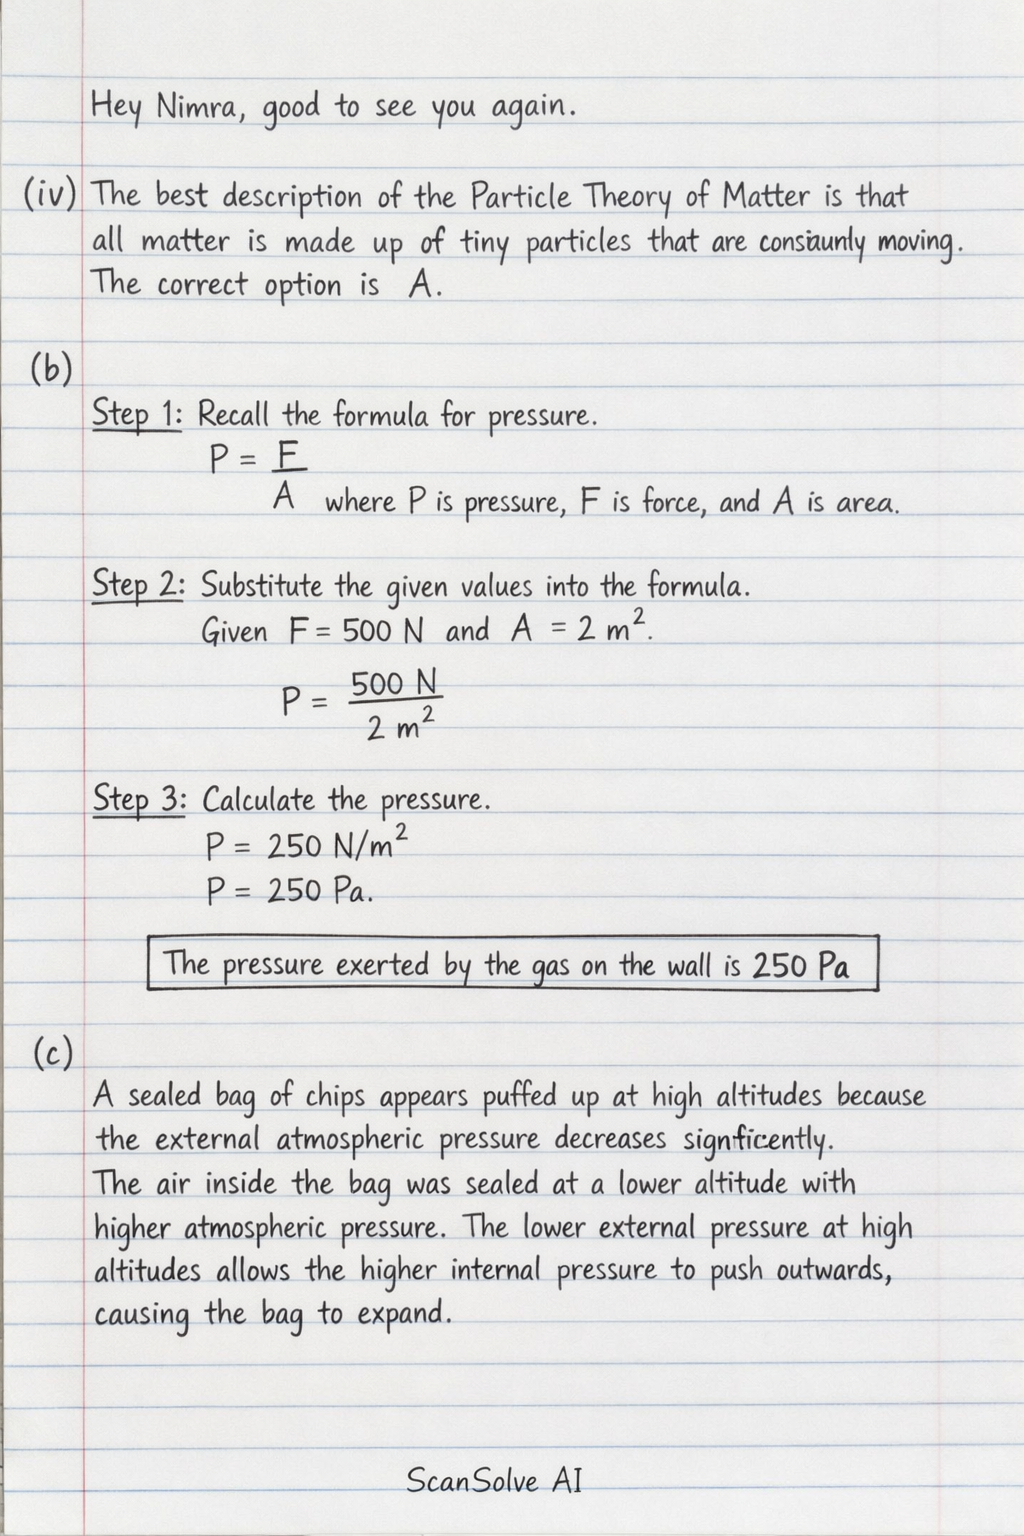 Hey Nimra, good to see you again.
(iv) The best description of the Particle Theory of Matter is that
all matter is made up of tiny particles that are moving.
The correct option is A.
(b)
Step 1: Recall the formula for pressure.
P = F
A where P is pressure, F is force, and A is area.
Step 2: Substitute the given values into the formula.
Given F = 500 N and A = 2 m².
P = 500 N
2 m²
Step 3: Calculate the pressure.
P = 250 N/m²
P = 250 Pa.
The pressure exerted by the gas on the wall is 250 Pa
(c)
A sealed bag of chips appears puffed up at high altitudes because
the external atmospheric pressure decreases signficently.
The air inside the bag was sealed at a lower altitude with
higher atmospheric pressure. The lower external pressure at high
altitudes allows the higher internal pressure to push outwards,
causing the bag to expand.
ScanSolve AI